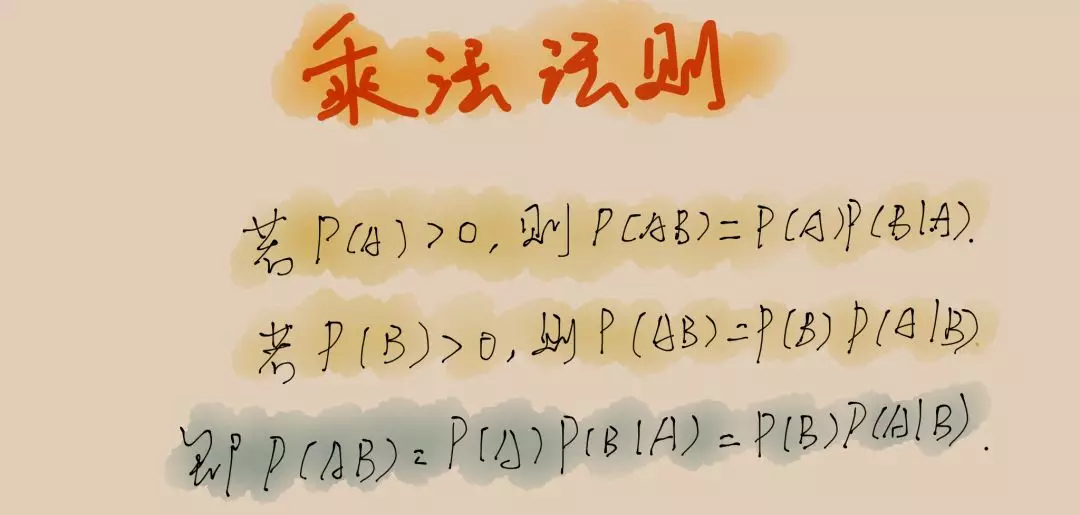 乘法法则
若 P(A)>0, 则 P(AB)=P(A)P(B|A).
若 P(B)>0, 则 P(AB)=P(B)P(A|B)
即 P(AB)=P(A)P(B|A)=P(B)P(A|B).